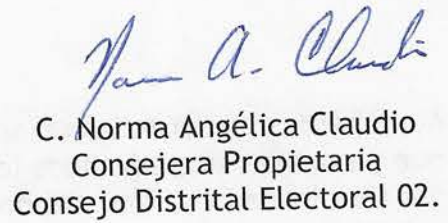 Norma A. Claudio
C. Norma Angélica Claudio
Consejera Propietaria
Consejo Distrital Electoral 02.